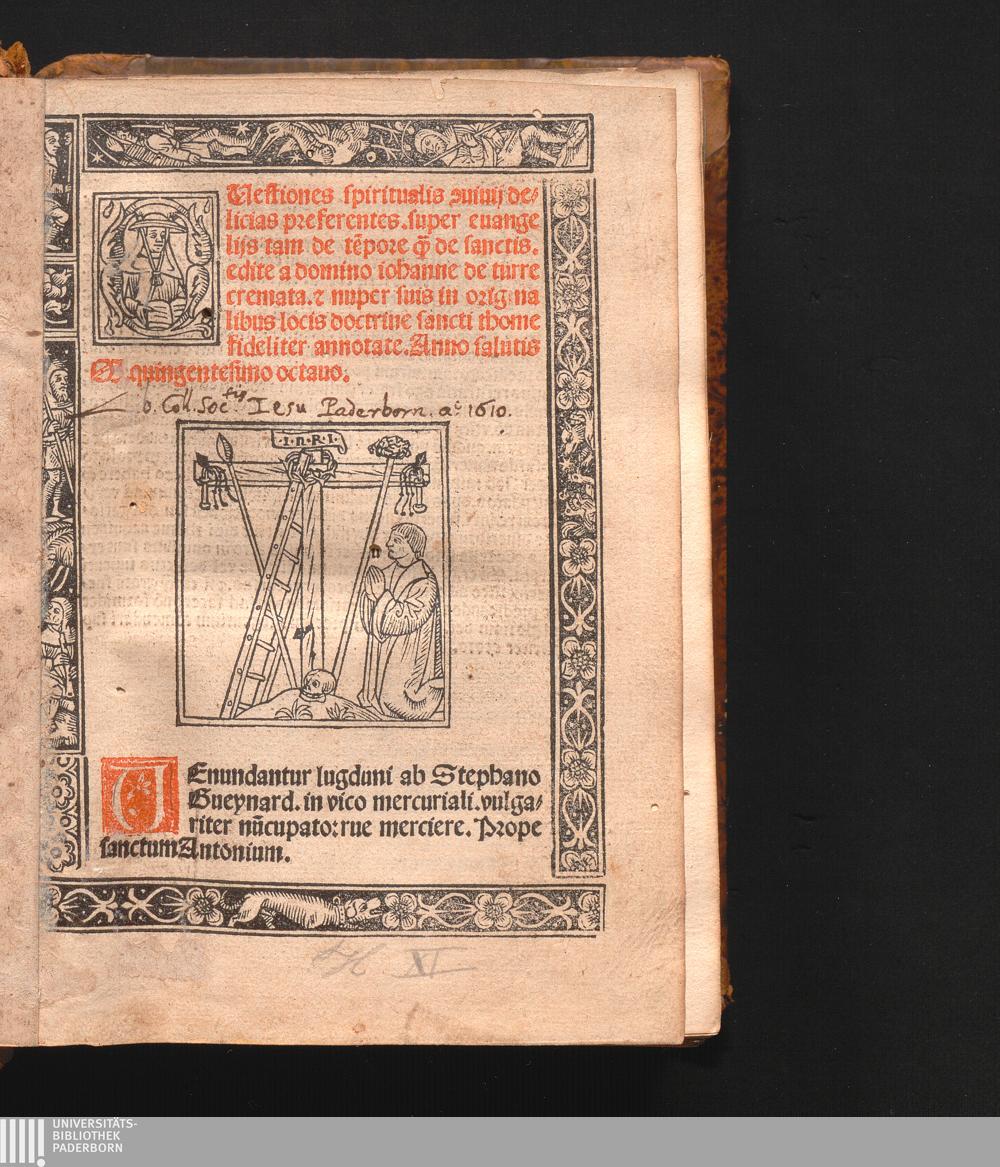 QUestiones spiritualis ↄuiuij de⸗
licias preferentes. super euange
lijs tam de tẽpore ꝙ̃ de sanctis.
edite a domino iohanne de turre
cremata. ⁊ nuper suis in origina
libus locis doctrine sancti thome
fideliter annotate. Anno salutis
M quingentesimo octauo.
Coll. Soctis Iesu Paderborn. ao 1610.
.I.n.R.I.
VEnundantur lugduni ab Stephano
Gueynard. in vico mercuriali. vulga⸗
riter nũcupato: rue merciere. Prope
sanctum Antonium.
XI
UNIVERSITÄTS-
BIBLIOTHEK
PADERBORN